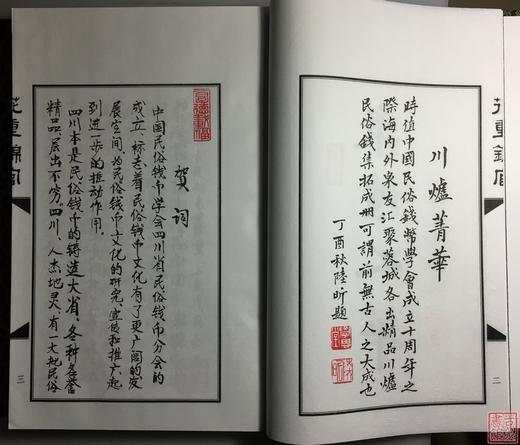 川爐菁華
時值中國民俗錢幣學會成立十周年之
際海內外泉友汇聚蓉城各出精品川爐
民俗錢集拓成册可謂前無古人之大成也
丁酉秋陸昕題
二
花重錦官
贺词
中国民俗钱币学会四川省民俗钱币分会的
成立，标志着民俗钱币文化有了更广阔的发
展空间，为民俗钱币文化的研究、宣传和推广起
到进一步的推动作用。
四川本是民俗钱币的铸造大省，各种名誉
精品，层出不穷。四川，人杰地灵，有一大批民俗
三
花重錦官